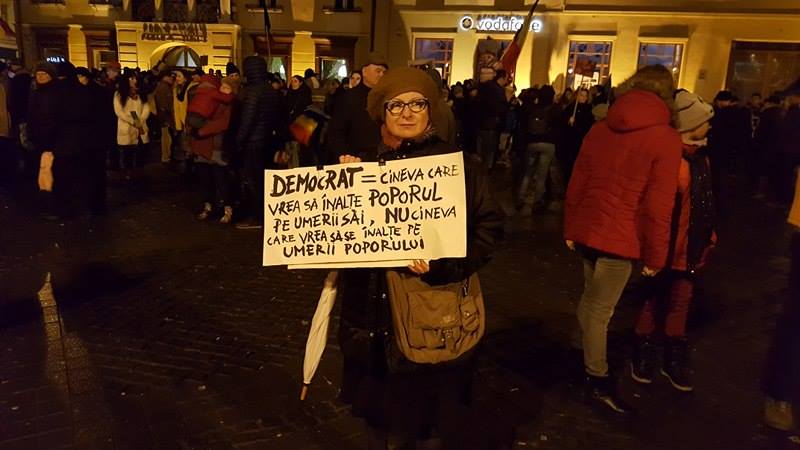 vodafone
DEMOCRAT = CINEVA CARE
VREA SĂ ÎNALȚE POPORUL
PE UMERII SĂI, NU CINEVA
CARE VREA SĂ SE ÎNALȚE PE
UMERII POPORULUI